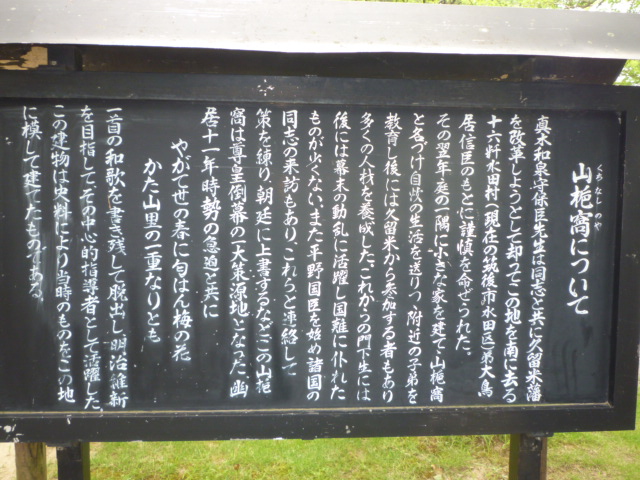 くちなしのや
山梔窩について
真木和泉守保臣先生は同志と共に久留米藩
を改革しようとして却つてこの地を南に去る
十六粁水田村(現在の筑後市水田区)弟大鳥
居信臣のもとに謹慎を命ぜられた。
その翌年庭の一隅に小さな家を建て山梔窩
と名づけ自炊の生活を送りつゝ附近の子弟を
教育し後には久留米から参加する者もあり
多くの人材を養成した。これからの門下生には
後には幕末の動乱に活躍し国難に仆れた
ものが少くない。また平野国臣を始め諸国の
同志の来訪もあり、これらと連絡して
策を練り、朝廷に上書するなどこの山梔
窩は尊皇倒幕の一大策源地となった。幽
居十一年時勢の急迫と共に
やがて世の春に匂はん梅の花
かた山里の一重なりとも
一首の和歌を書き残して脱出し、明治維新
を目指してその中心的指導者として活躍した。
この建物は史料により当時のものをこの地
に模して建てたものである。